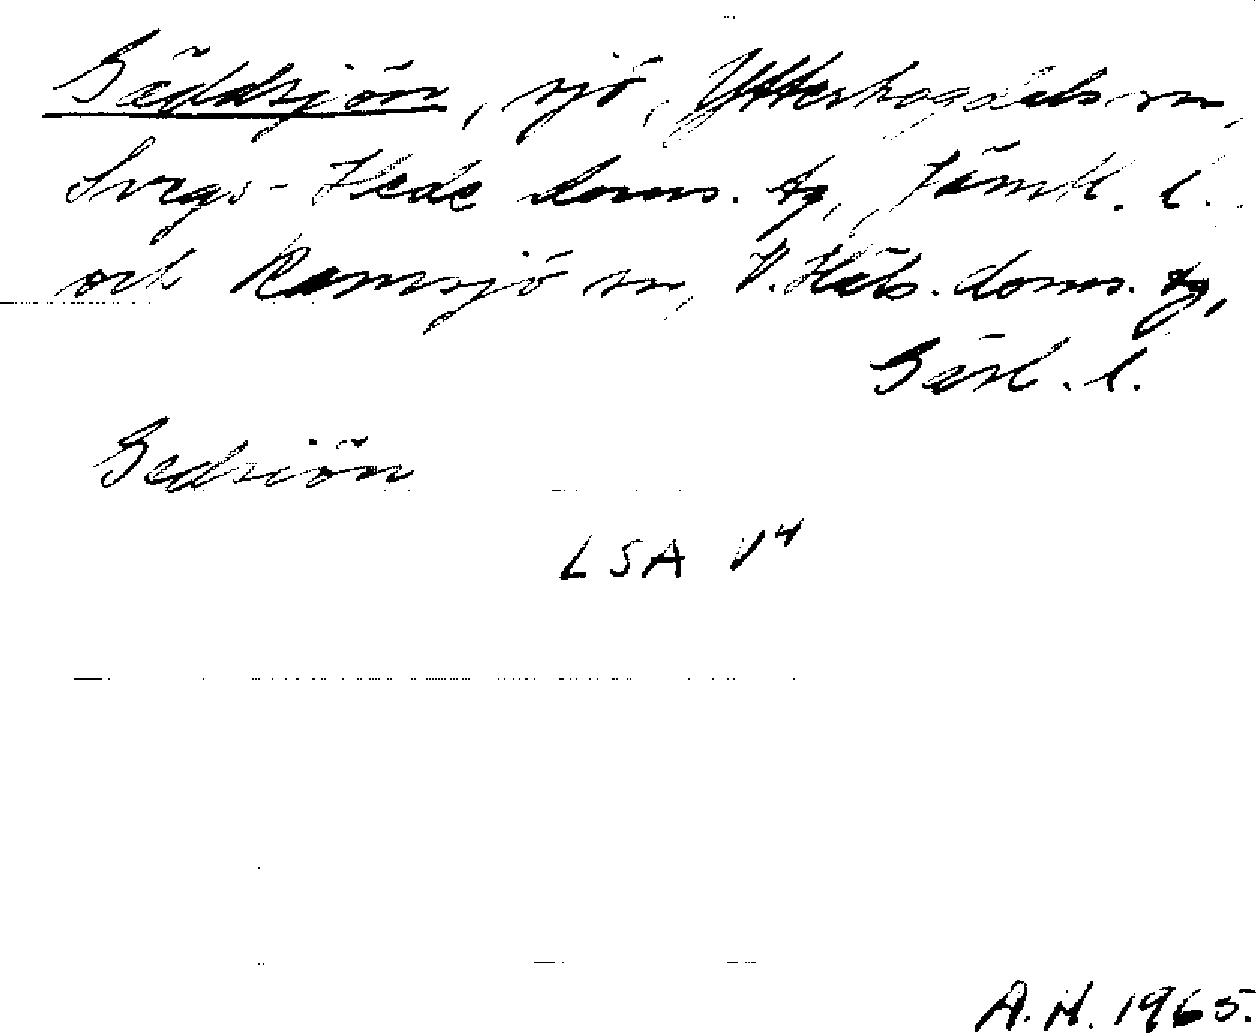 Gäddsjön, sjö, Ytterhogdals sn,
Svegs-Hede doms. tg, Jämtl. l.
och Ramsjö sn, V. Häls. doms. tg,
Gävl. l.
Gedsiön
LSA V4
A.H. 1965.